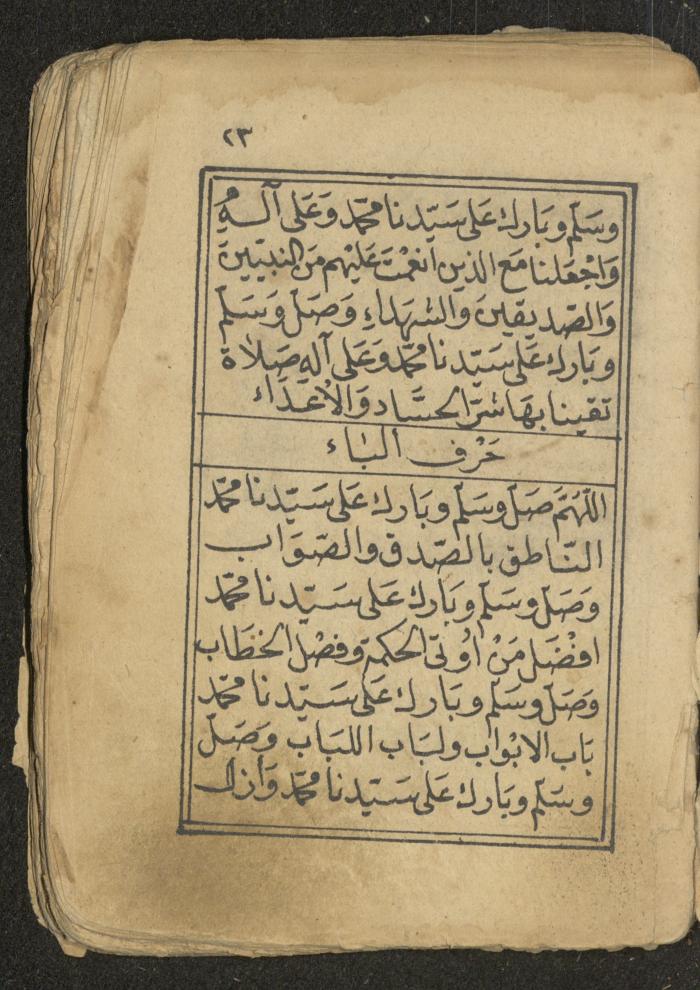 ٢٣
وسَلّم وبَارك عَلى سَيّدنا محمّد وَعَلى آلهِ
وَاجْعَلنا مَع الذين أنعمْتَ عَليْهم مَن النبيّين
وَالصّديقينَ والشهَداءِ وَصَلّ وَسَلّم
وبَارك عَلى سَيّدنا محمّد وَعَلى آلهِ صَلاة
تقينا بهَا شرّ الحسّاد وَالأعدَاء
حَرْف البَاء
اللّهُمَّ صَلّ وسَلّم وبَارك عَلى سَيّدنا محمّد
النّاطق بالصّدق والصّوَاب
وَصَلّ وسَلّم وبَارك عَلى سَيّدنا محمّد
افضَل مَنْ أوُتى الحكمة وفصْل الخطَاب
وَصَلّ وسَلّم وبَارك عَلى سَيّدنا محمّد
بَاب الابْوَاب ولبَاب اللبَاب وَصَلّ
وسَلّم وبَارك عَلى سَيّدنا محمّد وَأزل